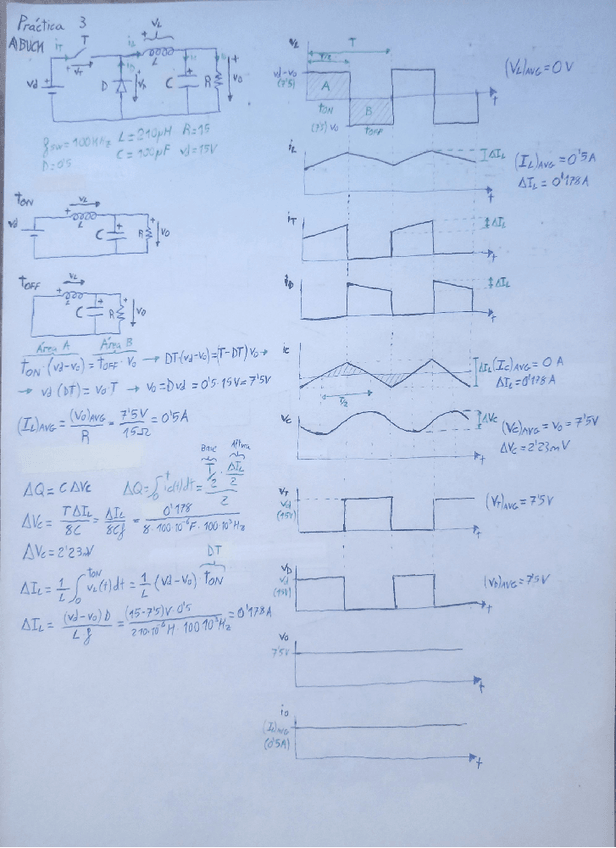 Práctica 3
A) BUCK
iT
T
vT
iL
vL
L
vd
D
C
R
vo
fsw=100KHz L=210μH R=15
D=0'5 C=100μF vd=15V
tON
vd
vL
L
C
R
vo
tOFF
vL
L
C
R
vo
Área A Área B
tON·(vd-vo)=tOFF·vo → DT(vd-vo)=(T-DT)vo →
→ vd(DT)=vo T → vo=Dvd=0'5·15V=7'5V
(IL)AVG=(vo)AVG/R=7'5V/15Ω=0'5A
Base Altura
ΔQ=CΔVc ΔQ=∫0t i(t)dt=(T/2·ΔIL/2)/2
ΔVc=TΔIL/8C=ΔIL/8Cf=0'178/8·100·10⁻⁶F·100·10³Hz
ΔVc=2'23mV
DT
ΔIL=1/L∫0tON vL(t)dt=1/L(vd-vo)·tON
ΔIL=(vd-vo)D/Lf=(15-7'5)V·0'5/210·10⁻⁶H·100·10³Hz=0'178A
vL
T
vd-vo
(7'5)
A
B
tON
tOFF
vo
t
(VL)AVG=0V
iL
ΔIL
t
(IL)AVG=0'5A
ΔIL=0'178A
iT
ΔIL
t
iD
ΔIL
t
ic
T/2
ΔIL
t
(Ic)AVG=0A
ΔIL=0'178A
vc
ΔVc
t
(Vc)AVG=vo=7'5V
ΔVc=2'23mV
vT
vd
(15V)
t
(VT)AVG=7'5V
vD
vd
(15V)
t
(vD)AVG=7'5V
vo
7'5V
t
io
(IL)AVG
(0'5A)
t